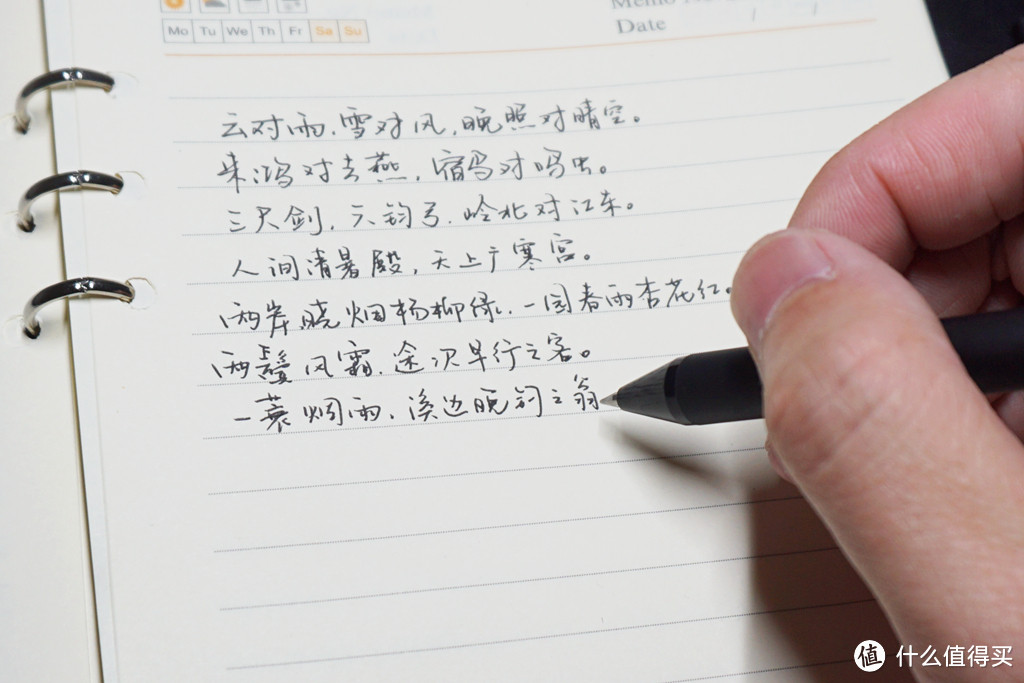 Mo Tu We Th Fr Sa Su
Date / /
云对雨,雪对风,晚照对晴空。
来鸿对去燕,宿鸟对鸣虫。
三尺剑,六钧弓,岭北对江东。
人间清暑殿,天上广寒宫。
两岸晓烟杨柳绿,一园春雨杏花红。
两鬓风霜,途次早行之客。
一蓑烟雨,溪边晚钓之翁
值 什么值得买